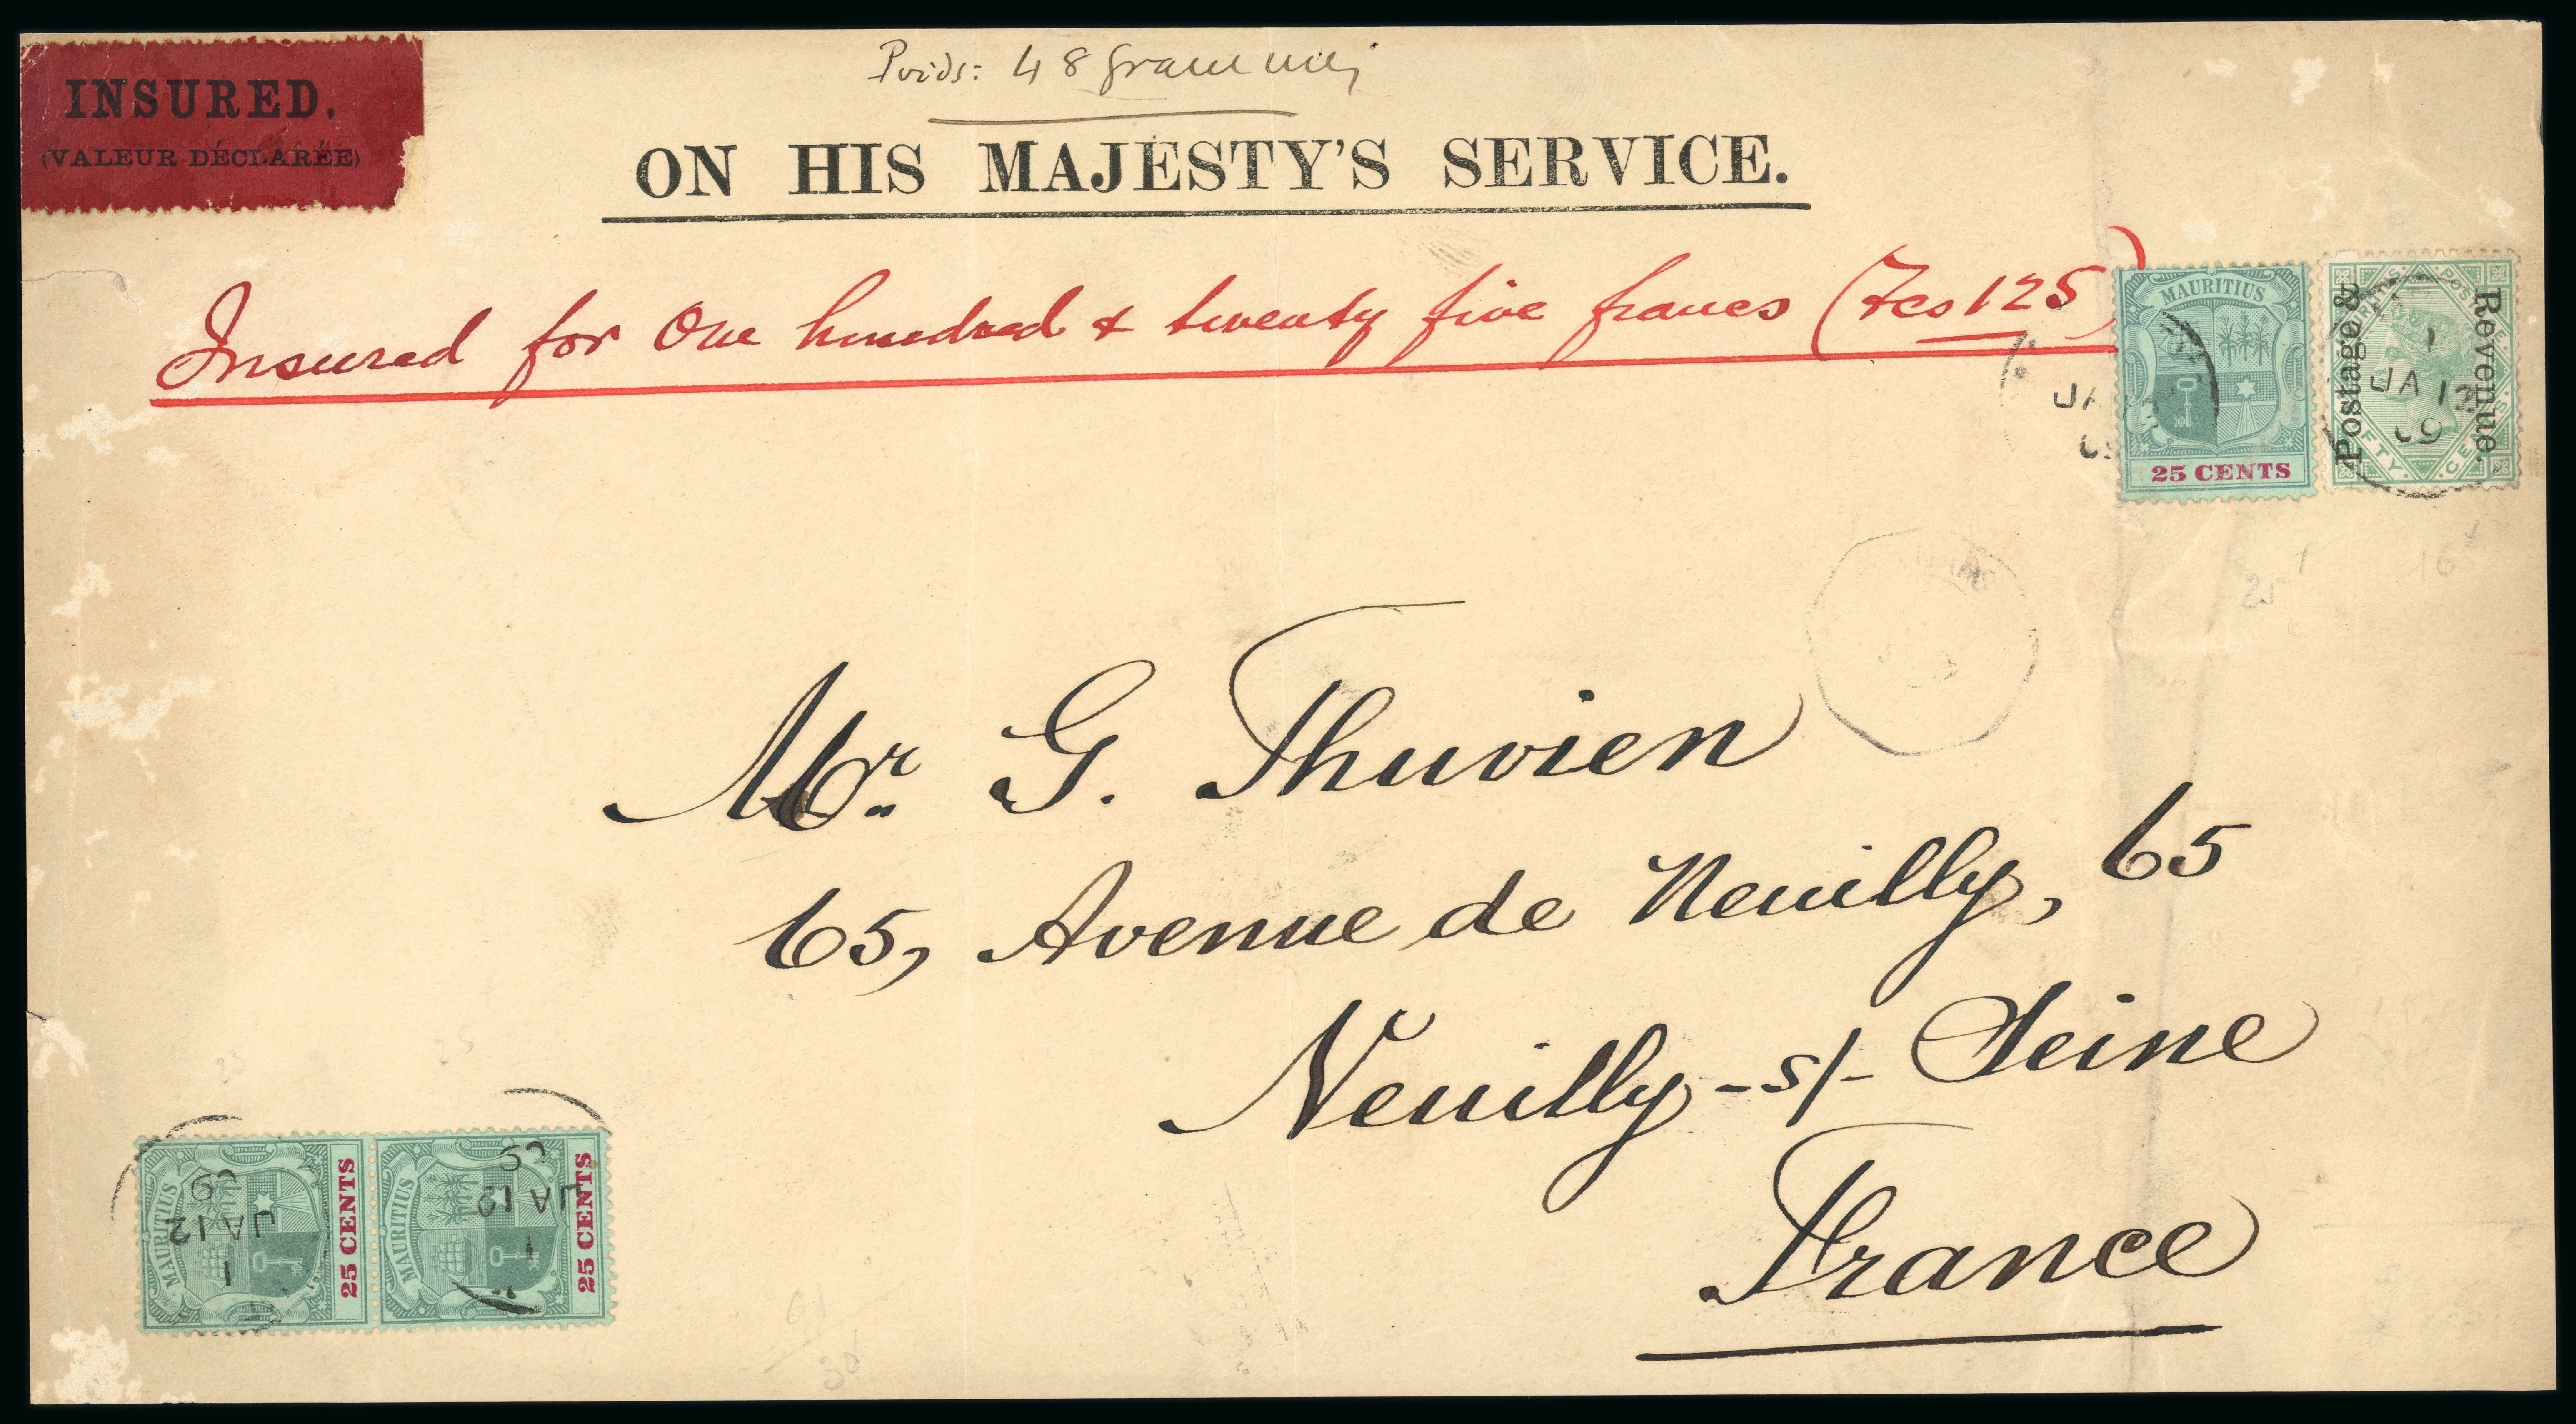 INSURED.
(VALEUR DÉCLARÉE)
Poids: 48 grammes
ON HIS MAJESTY'S SERVICE.
Insured for One hundred & twenty five francs (Fcs 125)
MAURITIUS
25 CENTS
Postage &
Revenue.
JA 12
09
JA
Mr. G. Thuvien
65, Avenue de Neuilly, 65
Neuilly-s/-Seine
France
MAURITIUS
25 CENTS
1
JA 12
09
MAURITIUS
25 CENTS
1
JA 12
09